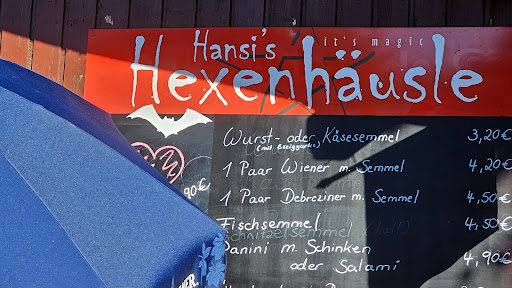 Hansi's
it's magic
Hexenhäusle
Wurst- oder Käsesemmel 3,20€
(mit Essiggurke)
1 Paar Wiener m. Semmel 4,20€
1 Paar Debreziner m. Semmel 4,50€
Fischsemmel 4,50€
Schnitzelsemmel (kalt)
Panini m. Schinken 4,90€
oder Salami
90€